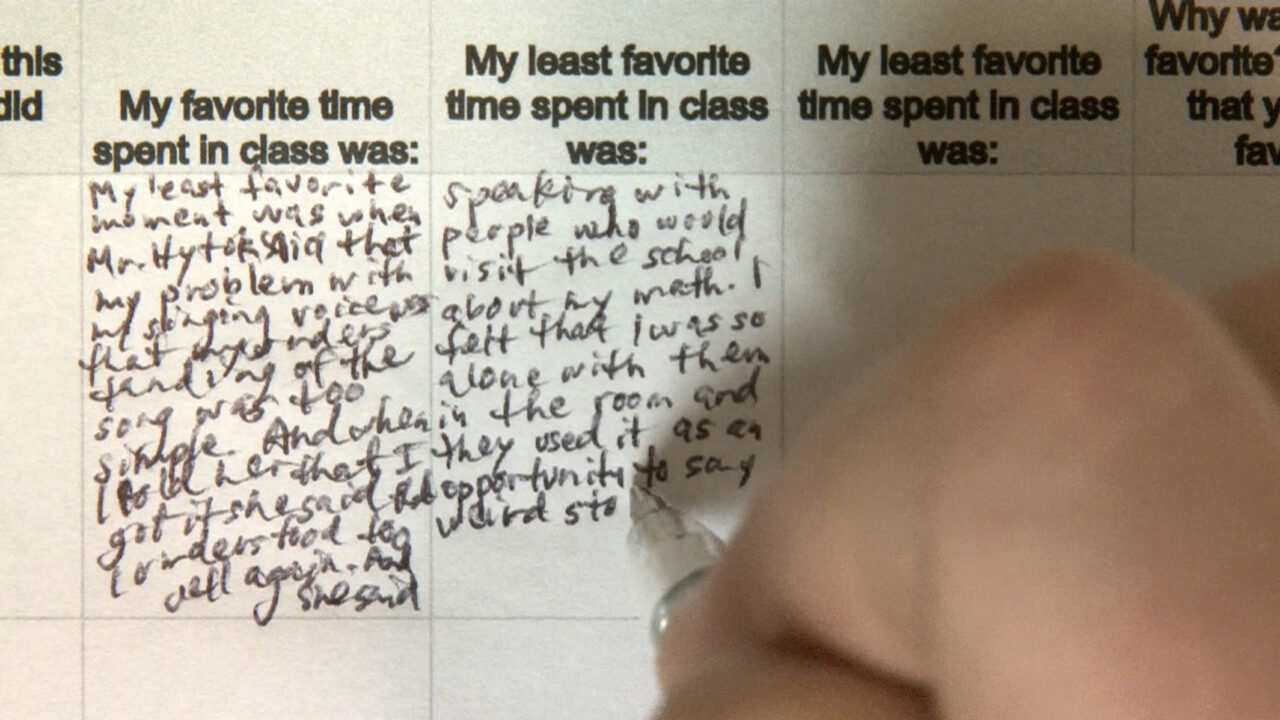 this
did
My favorite time
spent in class was:
My least favorite
time spent in class
was:
My least favorite
time spent in class
was:
Why wa
favorite?
that y
fav
My least favorite
moment was when
Mr. Hytok said that
my problem with
my singing voice was
that my unders
tanding of the
song was too
simple. And when
I told her that I
got it she said
I understood too
well again. And
she said
speaking with
people who would
visit the school
about my math. I
felt that I was so
alone with them
in the room and
they used it as an
opportunity to say
weird sto